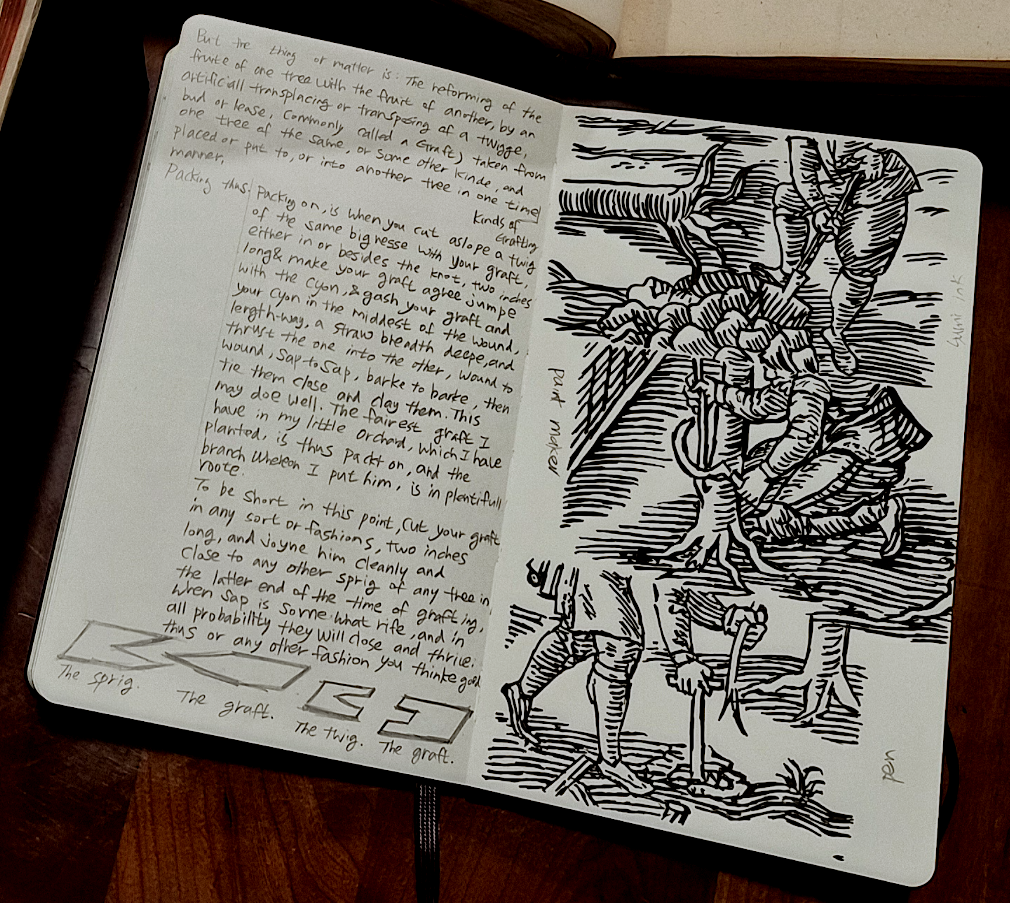 But the thing or matter is: The reforming of the
fruite of one tree with the fruit of another, by an
artificiall transplacing or transposing of a twigge,
bud or lease, (commonly called a Graft) taken from
one tree of the same, or some other kinde, and
placed or put to, or into another tree in one time
manner.
Kinds of
Grafting
Packing thus:
Packing on, is when you cut aslope a twig
of the same bignesse with your graft,
either in or besides the knot, two inches
long & make your graft agree jumpe
with the Cyon, & gash your graft and
your Cyon in the middest of the wound,
length-way, a straw breadth deepe, and
thrust the one into the other, wound to
wound, Sap to Sap, barke to barke, then
tie them close and clay them. This
may doe well. The fairest graft I
have in my little orchard, which I have
planted, is thus packt on, and the
branch whereon I put him, is in plentifull
roote.
To be short in this point, Cut your graft
in any sort or fashions, two inches
long, and joyne him cleanly and
close to any other sprig of any tree in
the latter end of the time of grafting,
when sap is somewhat rife, and in
all probability they will close and thrive.
thus or any other fashion you thinke good
The sprig.
The graft.
The twig.
The graft.
paint maker
Sumi ink
pen